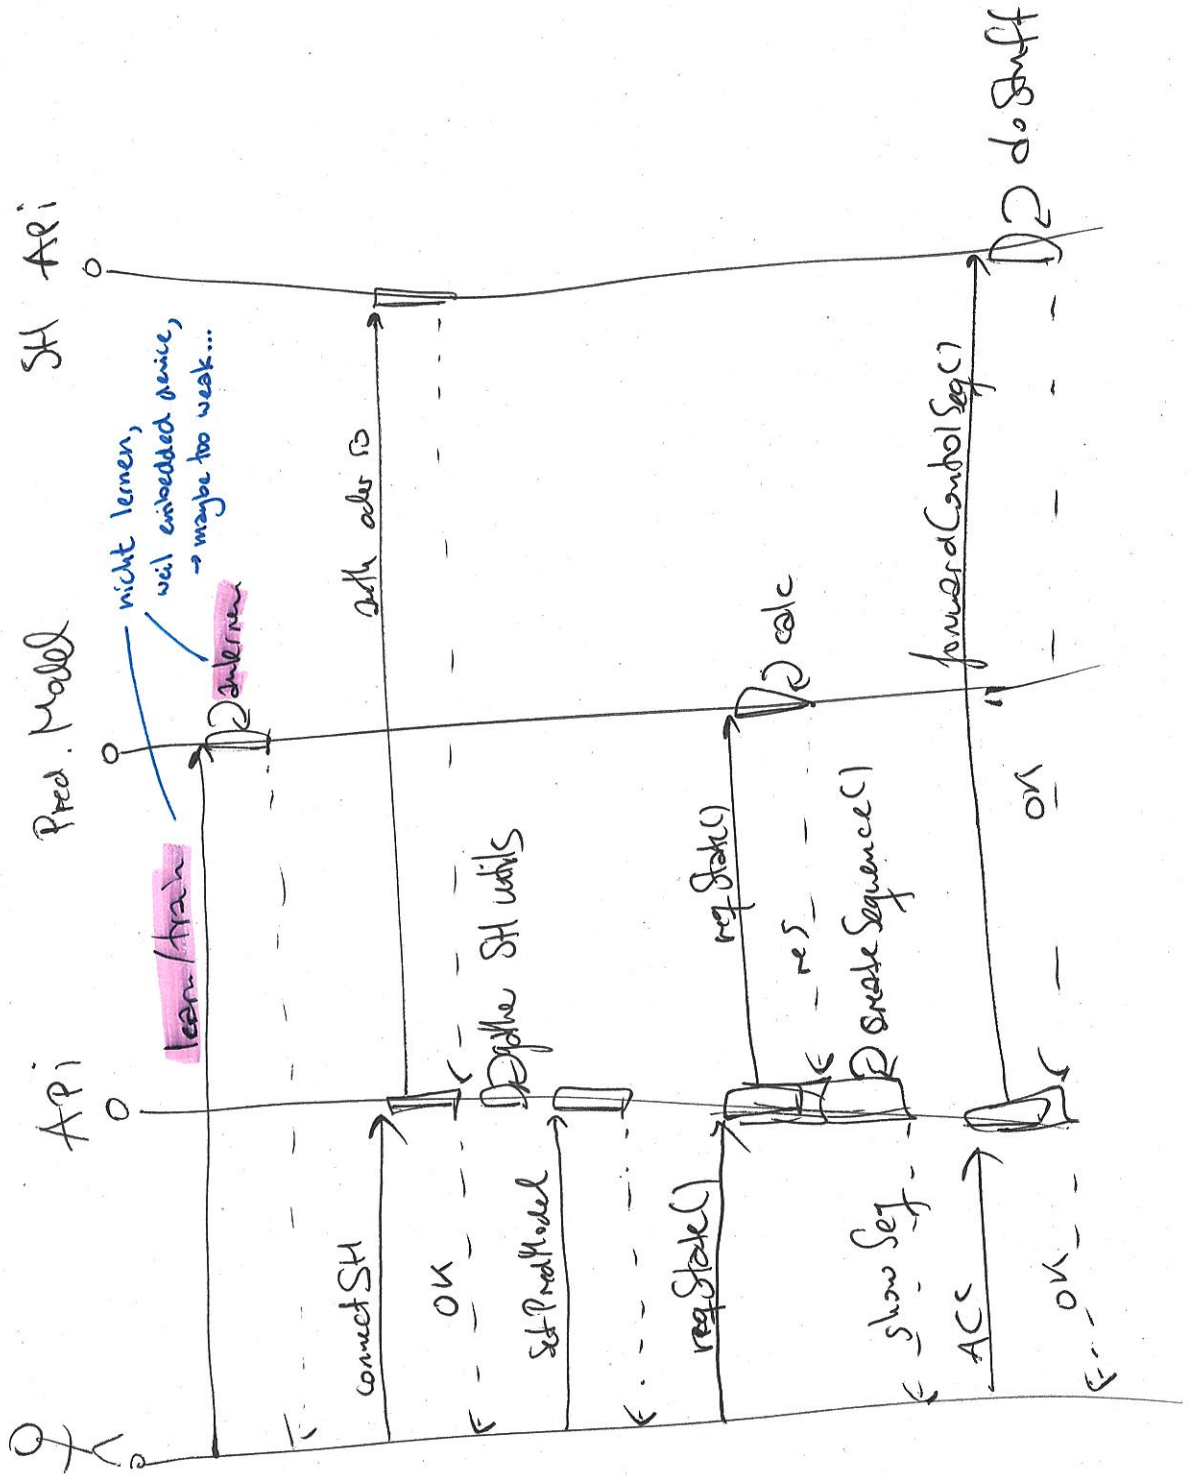 API
Pred. Model
SH API
learn/train
anlernen
nicht lernen,
weil embedded device,
→ maybe too weak...
connectSH
auth oder so
OK
gathe SH utils
SetPredModel
reqState()
reqState()
calc
res
createSequence()
show Seq
ACC
forwardControlSeq()
doStuff
OK
OK